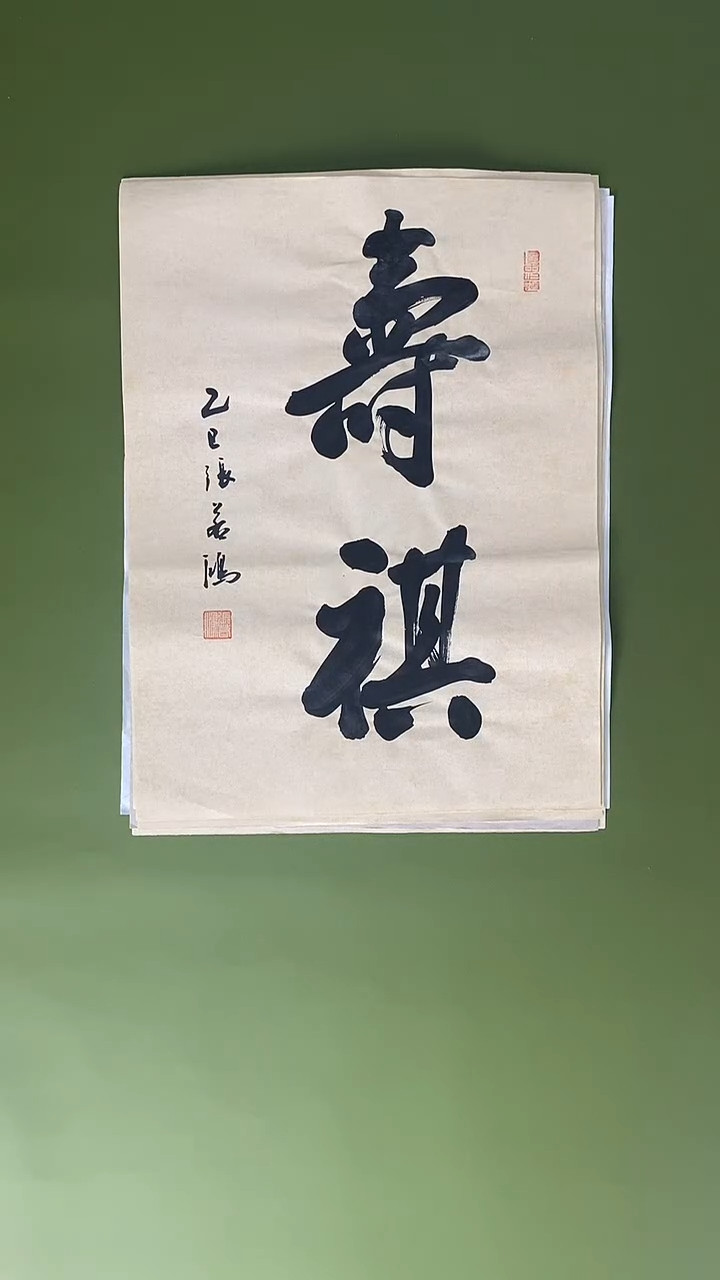 壽祺
乙巳張若鴻